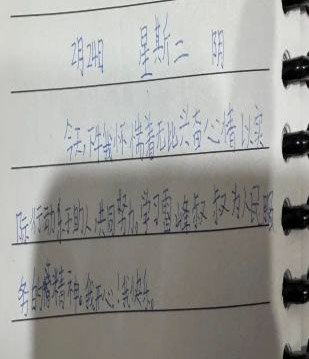 2月24日 星期二 阴
今天下午我怀揣着无比兴奋心情以实
际行动来助人共同努力,学习雷峰叔叔为人民服
务的精神。我开心!我快乐